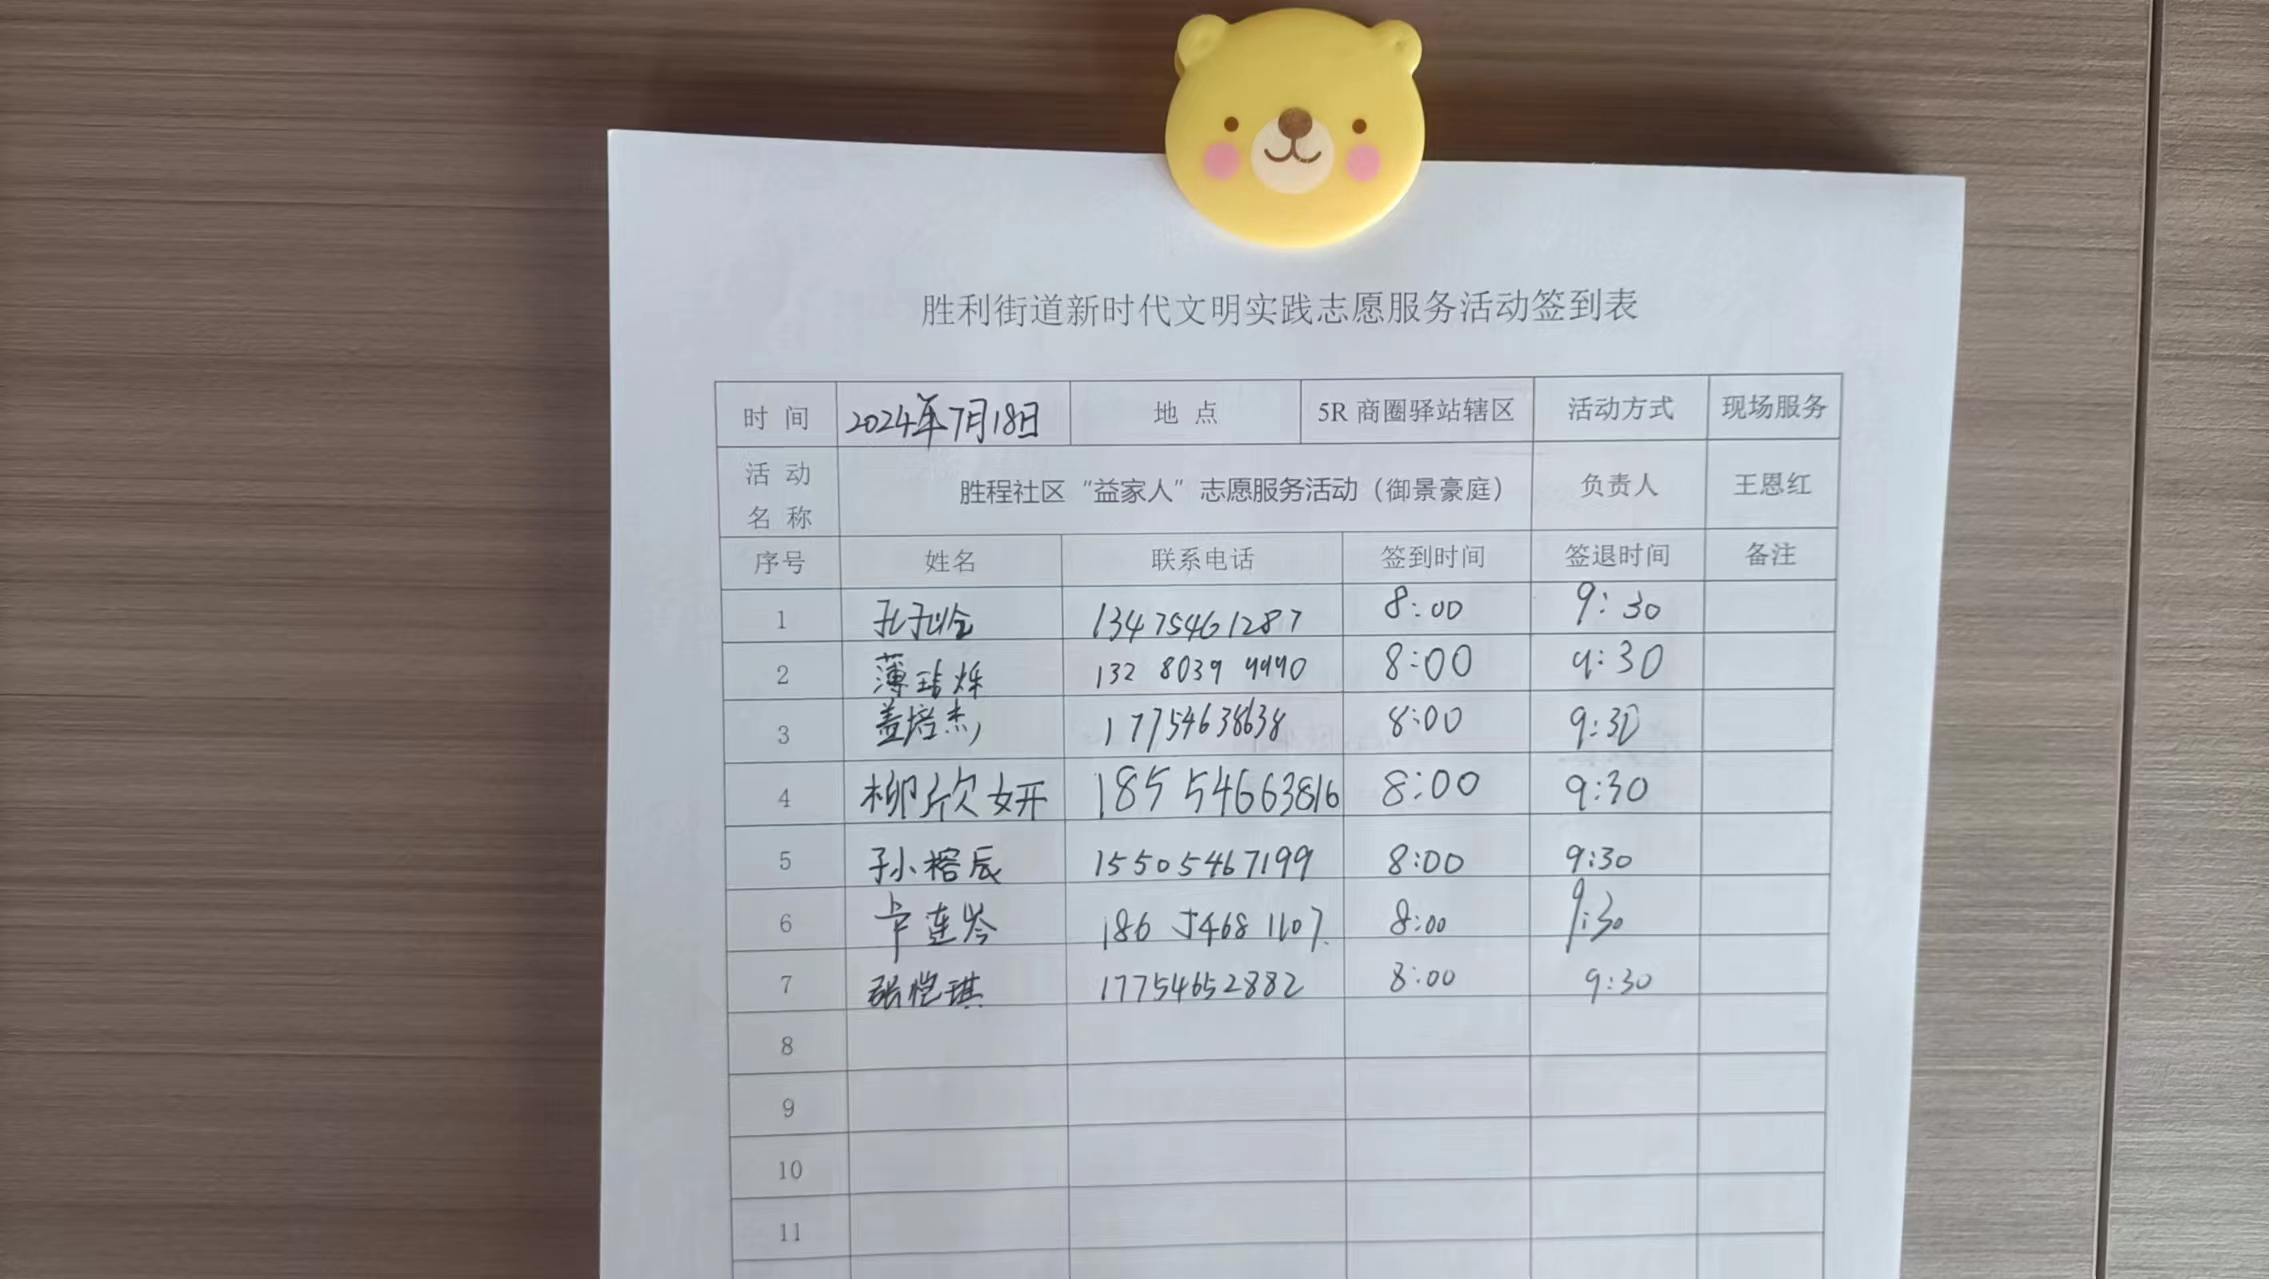 胜利街道新时代文明实践志愿服务活动签到表
时 间 2024年7月18日 地 点 5R 商圈驿站辖区 活动方式 现场服务
活 动 名 称 胜程社区“益家人”志愿服务活动（御景豪庭） 负责人 王恩红
序号 姓名 联系电话 签到时间 签退时间 备注
1 13475461287 8:00 9:30
2 132 8039 9990 8:00 9:30
3 盖培杰 17754638638 8:00 9:30
4 柳欣妍 18554663816 8:00 9:30
5 孙榕辰 15505467199 8:00 9:30
6 卞连岑 186 5468 1107 8:00 9:30
7 张恺琪 17754652882 8:00 9:30
8
9
10
11